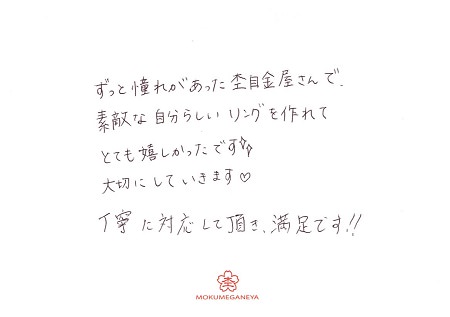 ずっと憧れがあった杢目金屋さんで、
素敵な自分らしいリングを作れて
とても嬉しかったです✨
大切にしていきます♡
丁寧に対応して頂き、満足です!!
杢
MOKUMEGANEYA